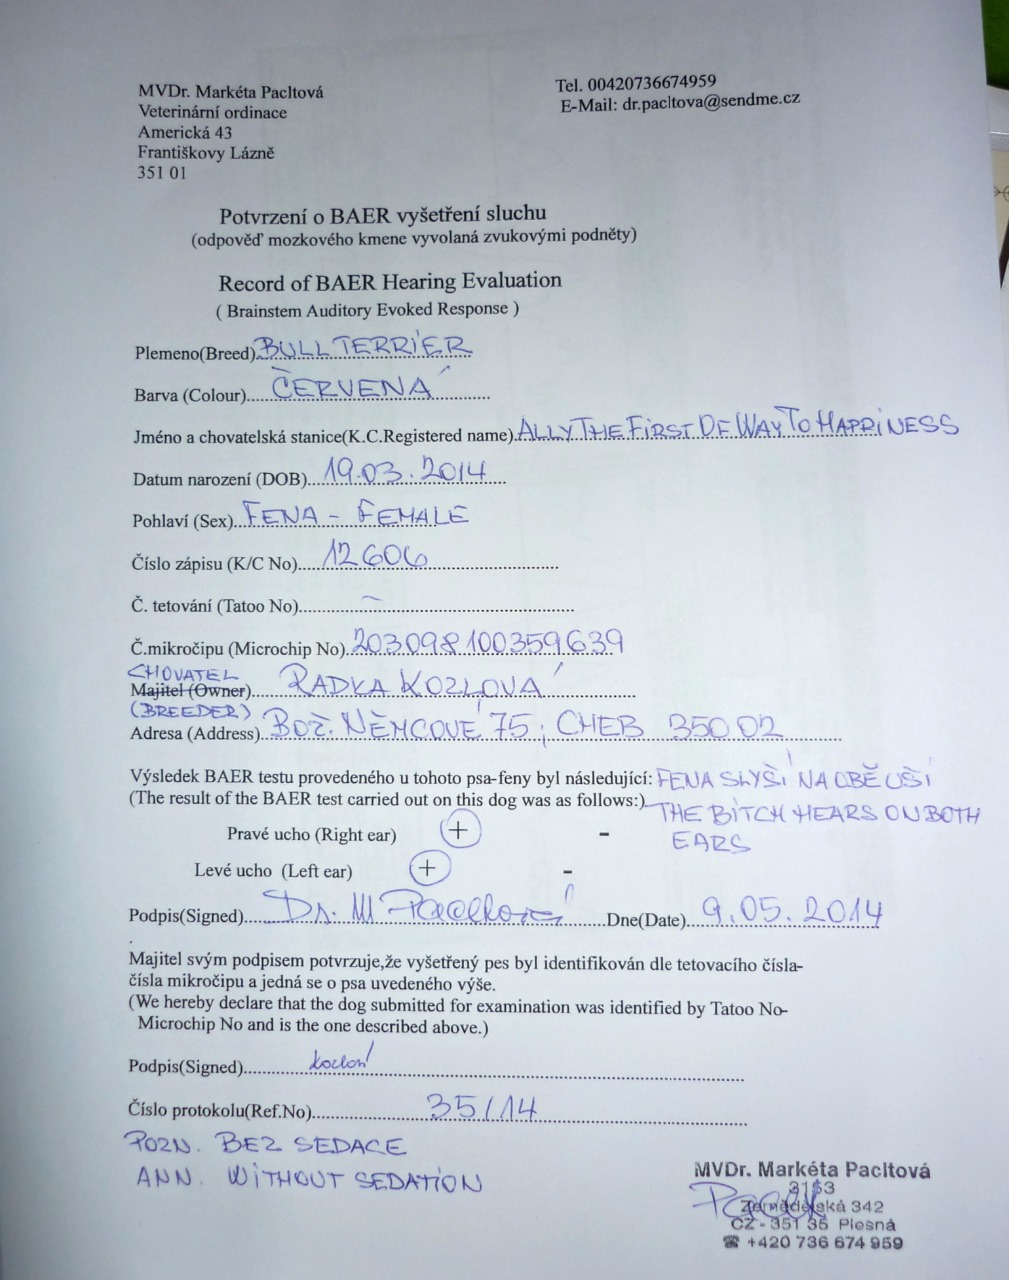 MVDr. Markéta Pacltová
Tel. 00420736674959
Veterinární ordinace
E-Mail: dr.pacltova@sendme.cz
Americká 43
Františkovy Lázně
351 01
Potvrzení o BAER vyšetření sluchu
(odpověď mozkového kmene vyvolaná zvukovými podněty)
Record of BAER Hearing Evaluation
( Brainstem Auditory Evoked Response )
Plemeno(Breed) BULL TERRIER
Barva (Colour)..... ČERVENÁ
Jméno a chovatelská stanice(K.C.Registered name). ALLY THE FIRST DE WAY TO HAPPINESS
Datum narození (DOB)... 19.03.2014
Pohlaví (Sex). FENA - FEMALE
Číslo zápisu (K/C No)..... 12606
Č. tetování (Tatoo No)..... –
Č.mikročipu (Microchip No). 203098100359639
CHOVATEL
Majitel (Owner)..... RADKA KOZLOVÁ
(BREEDER)
Adresa (Address). BOŽ. NĚMCOVÉ 75, CHEB 350 02
Výsledek BAER testu provedeného u tohoto psa-feny byl následující: FENA SLYŠÍ NA OBĚ UŠI
(The result of the BAER test carried out on this dog was as follows:) THE BITCH HEARS ON BOTH
EARS
Pravé ucho (Right ear) + -
Levé ucho (Left ear) + -
Podpis(Signed)..... Dr. M Pacltová .....Dne(Date). 9.05.2014
Majitel svým podpisem potvrzuje,že vyšetřený pes byl identifikován dle tetovacího čísla-
čísla mikročipu a jedná se o psa uvedeného výše.
(We hereby declare that the dog submitted for examination was identified by Tatoo No-
Microchip No and is the one described above.)
Podpis(Signed)..... Kozlová
Číslo protokolu(Ref.No)..... 35/14
POZN. BEZ SEDACE
ANN. WITHOUT SEDATION
MVDr. Markéta Pacltová
3153
Zemědělská 342
CZ - 351 35 Plesná
☎ +420 736 674 959